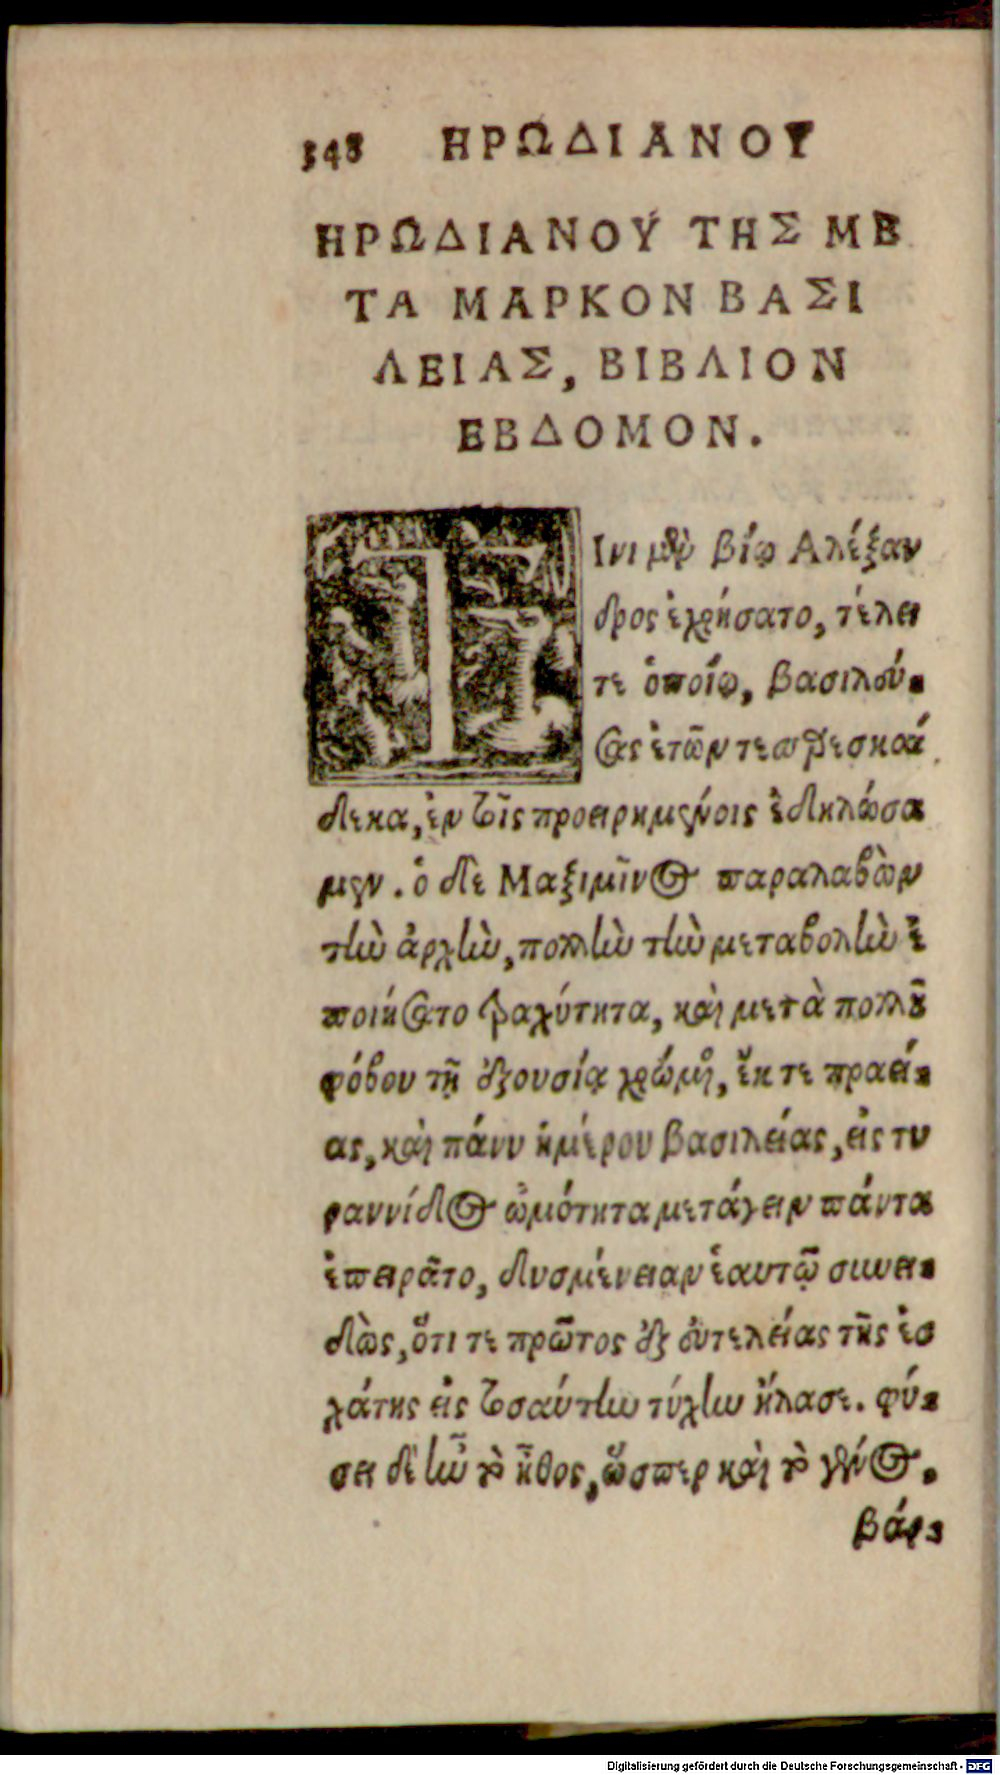 348 ΗΡΩΔΙΑΝΟΥ
ΗΡΩΔΙΑΝΟΥ ΤΗΣ ΜΕ
ΤΑ ΜΑΡΚΟΝ ΒΑΣΙ
ΛΕΙΑΣ, ΒΙΒΛΙΟΝ
ΕΒΔΟΜΟΝ.
ΤΙνι μὲν βίῳ Αλέξαν
δρος ἐχρήσατο, τέλει
τε ὁποίῳ, βασιλεύ-
σας ἐτῶν τεσσαρεσκαί
δεκα, ἐν τοῖς προειρημένοις ἐδηλώσα
μεν. ὁ δὲ Μαξιμῖνος παραλαβὼν
τὴν ἀρχὴν, πολλὴν τὴν μεταβολὴν ἐ
ποιήσατο τραχύτητα, καὶ μετὰ πολλοῦ
φόβου τῇ ἐξουσίᾳ χρώμενος, ἔκ τε πραεί-
ας, καὶ πάνυ ἡμέρου βασιλείας, εἰς τυ
ραννίδος ὠμότητα μετάγειν πάντα
ἐπειρᾶτο, δυσμένειαν ἑαυτῷ συνει-
δὼς, ὅτι τε πρῶτος ἐξ εὐτελείας τῆς ἐσ
χάτης εἰς τοσαύτην τύχην ἤλασε. φύ-
σει δὲ ἦν τὸ ἦθος, ὥσπερ καὶ τὸ γένος,
βάρ-
Digitalisierung gefördert durch die Deutsche Forschungsgemeinschaft - DFG